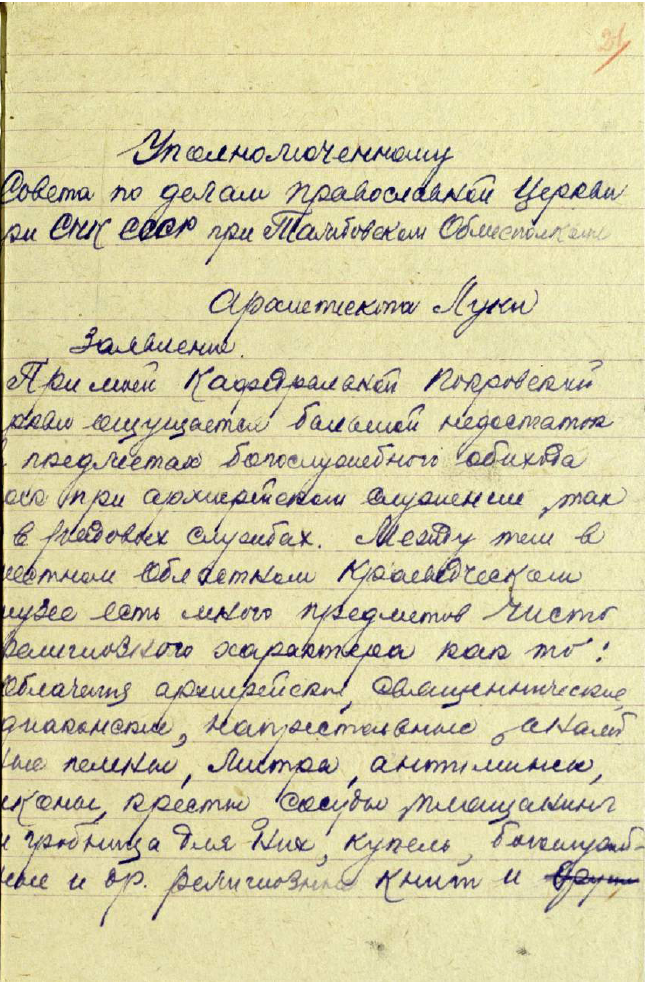 21
Уполномоченному
Совета по делам православной Церкви
ри СНК СССР при Тамбовском Облисполкоме
Архиепископа Луки
Заявление.
При моей Кафедральной Покровской
ркви ощущается большой недостаток
в предметах богослужебного обихода
как при архиерейском служении, так
в рядовых службах. Между тем в
местном Областном Краеведческом
музее есть много предметов чисто
религиозного характера как то:
Облачения архиерейские, священнические,
диаконские, напрестольные, аналой
ные пелены, митра, антиминсы,
иконы, кресты сосуды, плащаницы
и гробница для них, купель, богослужеб-
ные и др. религиозные книги и